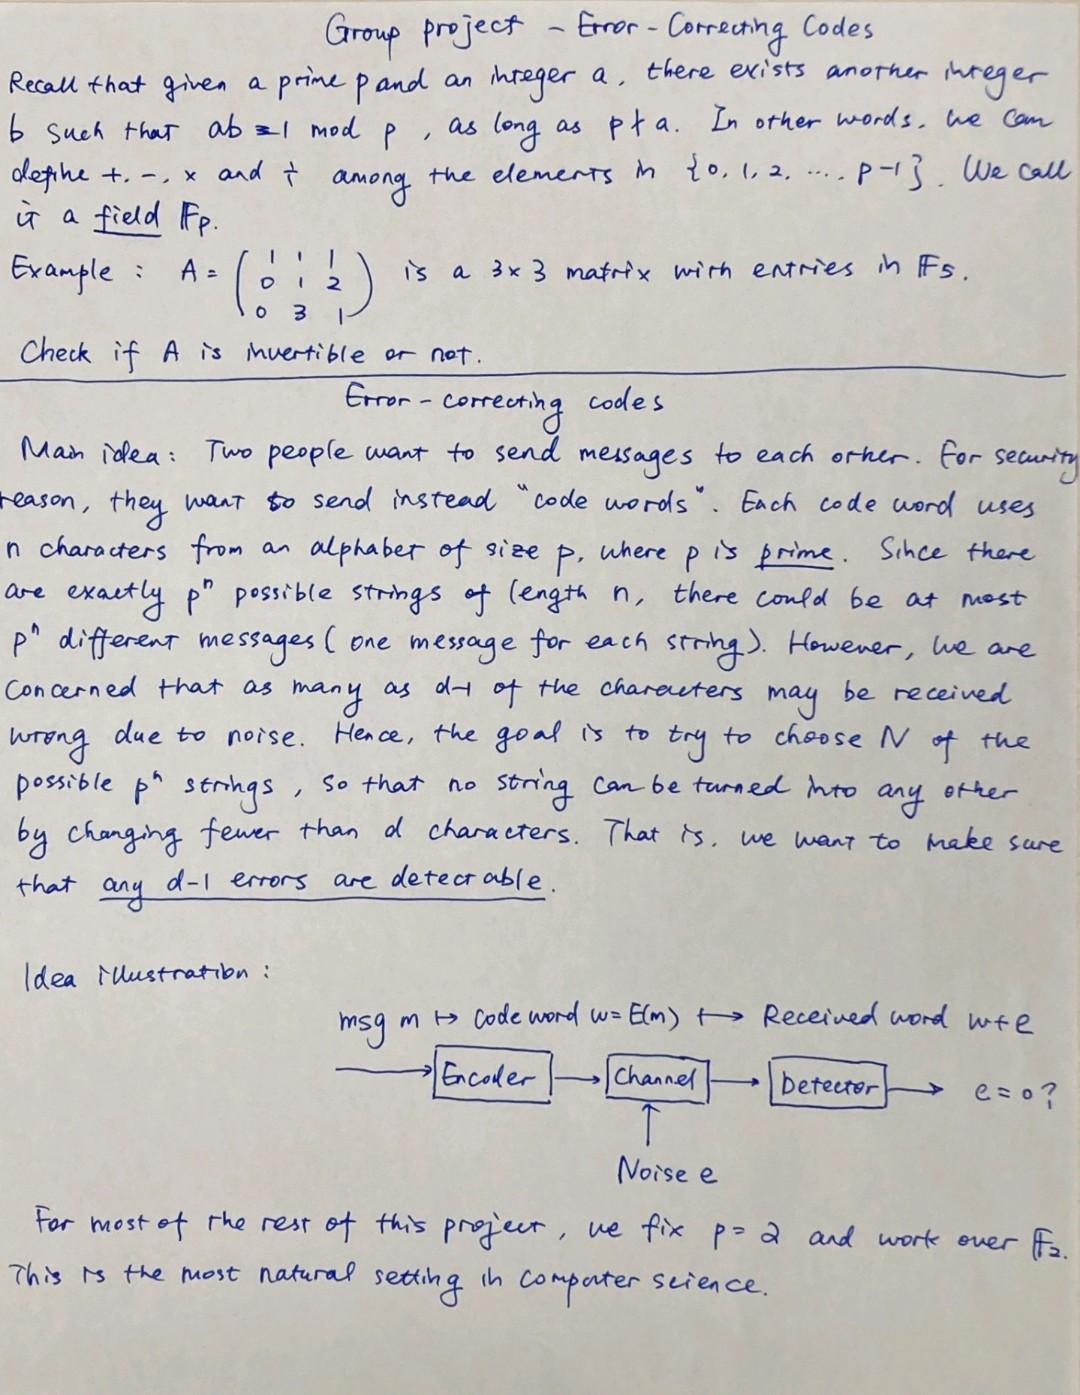 Group project - Error-Correcting Codes
Recall that given a prime p and an integer a, there exists another integer
b such that ab ≡ 1 mod p, as long as p ∤ a. In other words, we can
define +, -, × and ÷ among the elements in {0, 1, 2, ..., p-1}. We call
it a field Fp.
Example : A = ( 1 1 1
0 1 2
0 3 1 ) is a 3×3 matrix with entries in F5.
Check if A is invertible or not.
Error-correcting codes
Main idea: Two people want to send messages to each other. For security
reason, they want to send instead "code words". Each code word uses
n characters from an alphabet of size p, where p is prime. Since there
are exactly pⁿ possible strings of length n, there could be at most
pⁿ different messages (one message for each string). However, we are
concerned that as many as d-1 of the characters may be received
wrong due to noise. Hence, the goal is to try to choose N of the
possible pⁿ strings, so that no string can be turned into any other
by changing fewer than d characters. That is, we want to make sure
that any d-1 errors are detectable.
Idea illustration :
msg m ↦ Code word w = E(m) ↦ Received word w+e
Encoder → Channel → Detector → e = 0?
Noise e
For most of the rest of this project, we fix p = 2 and work over F2.
This is the most natural setting in computer science.